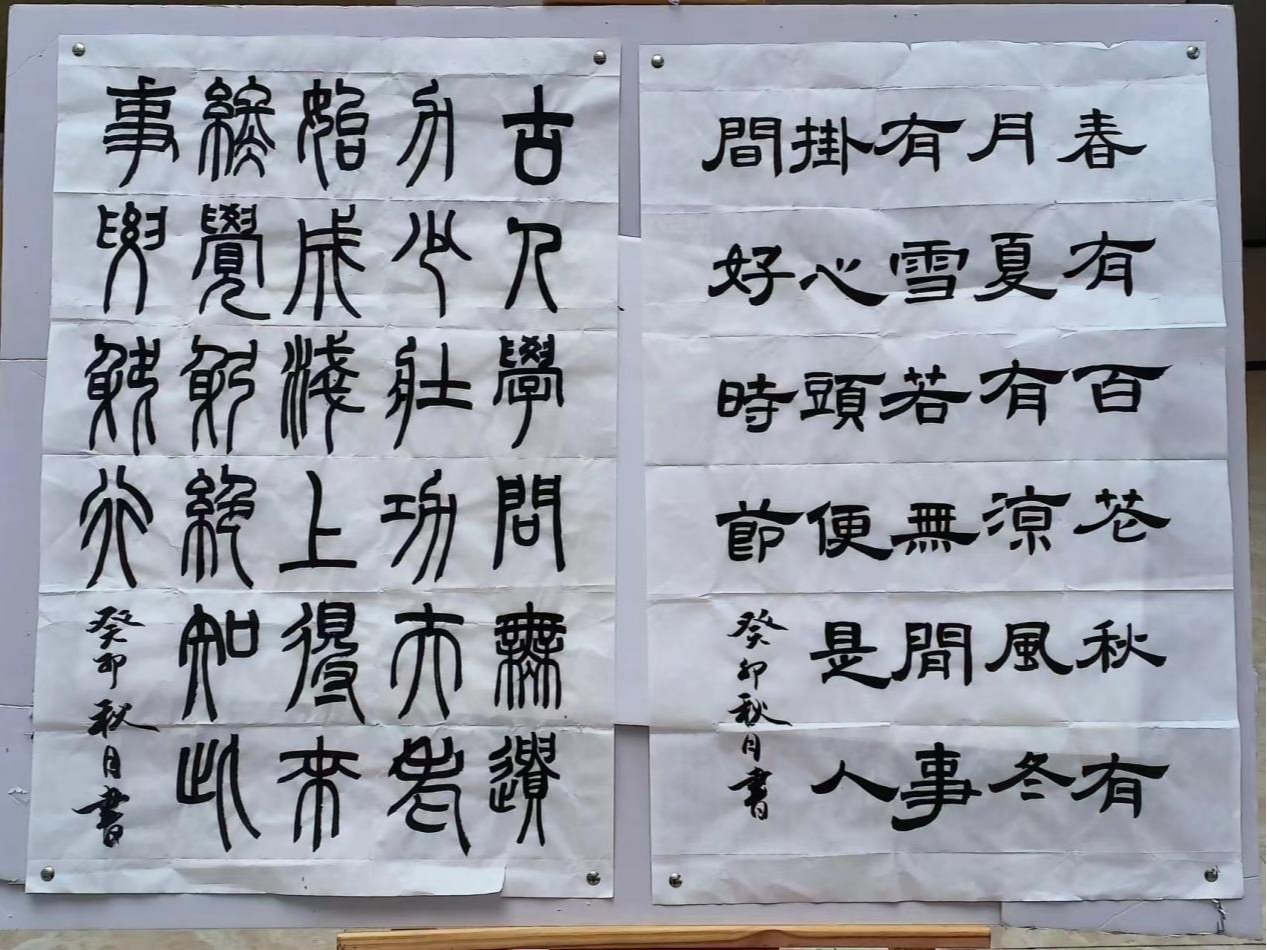 春有百花秋有
月夏有涼風冬
有雪若無閒事
掛心頭便是人
間好時節
癸卯秋月書
古人學問無遺
力少壯功夫老
始成淺上得來
終覺絕知此
事要躬行
癸卯秋月書